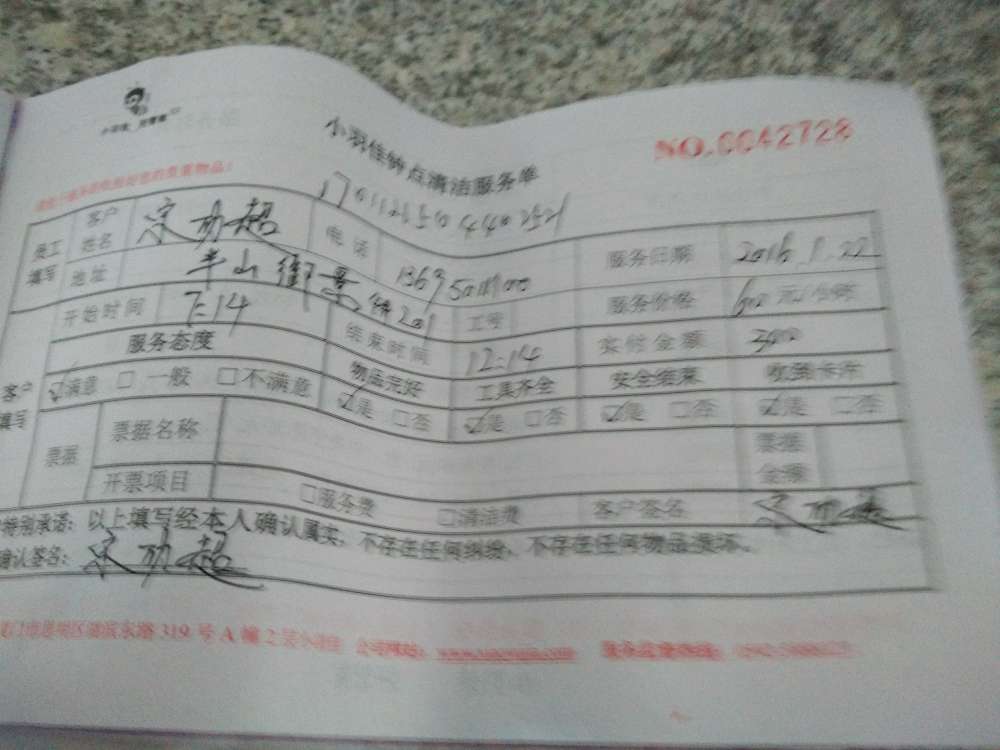 小羽佳 管家
NO.0042728
小羽佳钟点清洁服务单
员工填写 客户姓名 宋功超 电话 服务日期 2016.1.22
地址 半山御景 201 工号 服务价格 60元/小时
开始时间 7:14 结束时间 12:14 实付金额 300
客户填写 服务态度 物品完好 工具齐全 安全结束 收到卡片
☑满意 □一般 □不满意 ☑是 □否 ☑是 □否 ☑是 □否 ☑是 □否
票据 票据名称 票据金额
开票项目 □服务费 □清洁费 客户签名 宋功超
特别承诺：以上填写经本人确认属实，不存在任何纠纷、不存在任何物品损坏。
确认签名：宋功超
东路319号A幢2层小羽佳 公司网站：